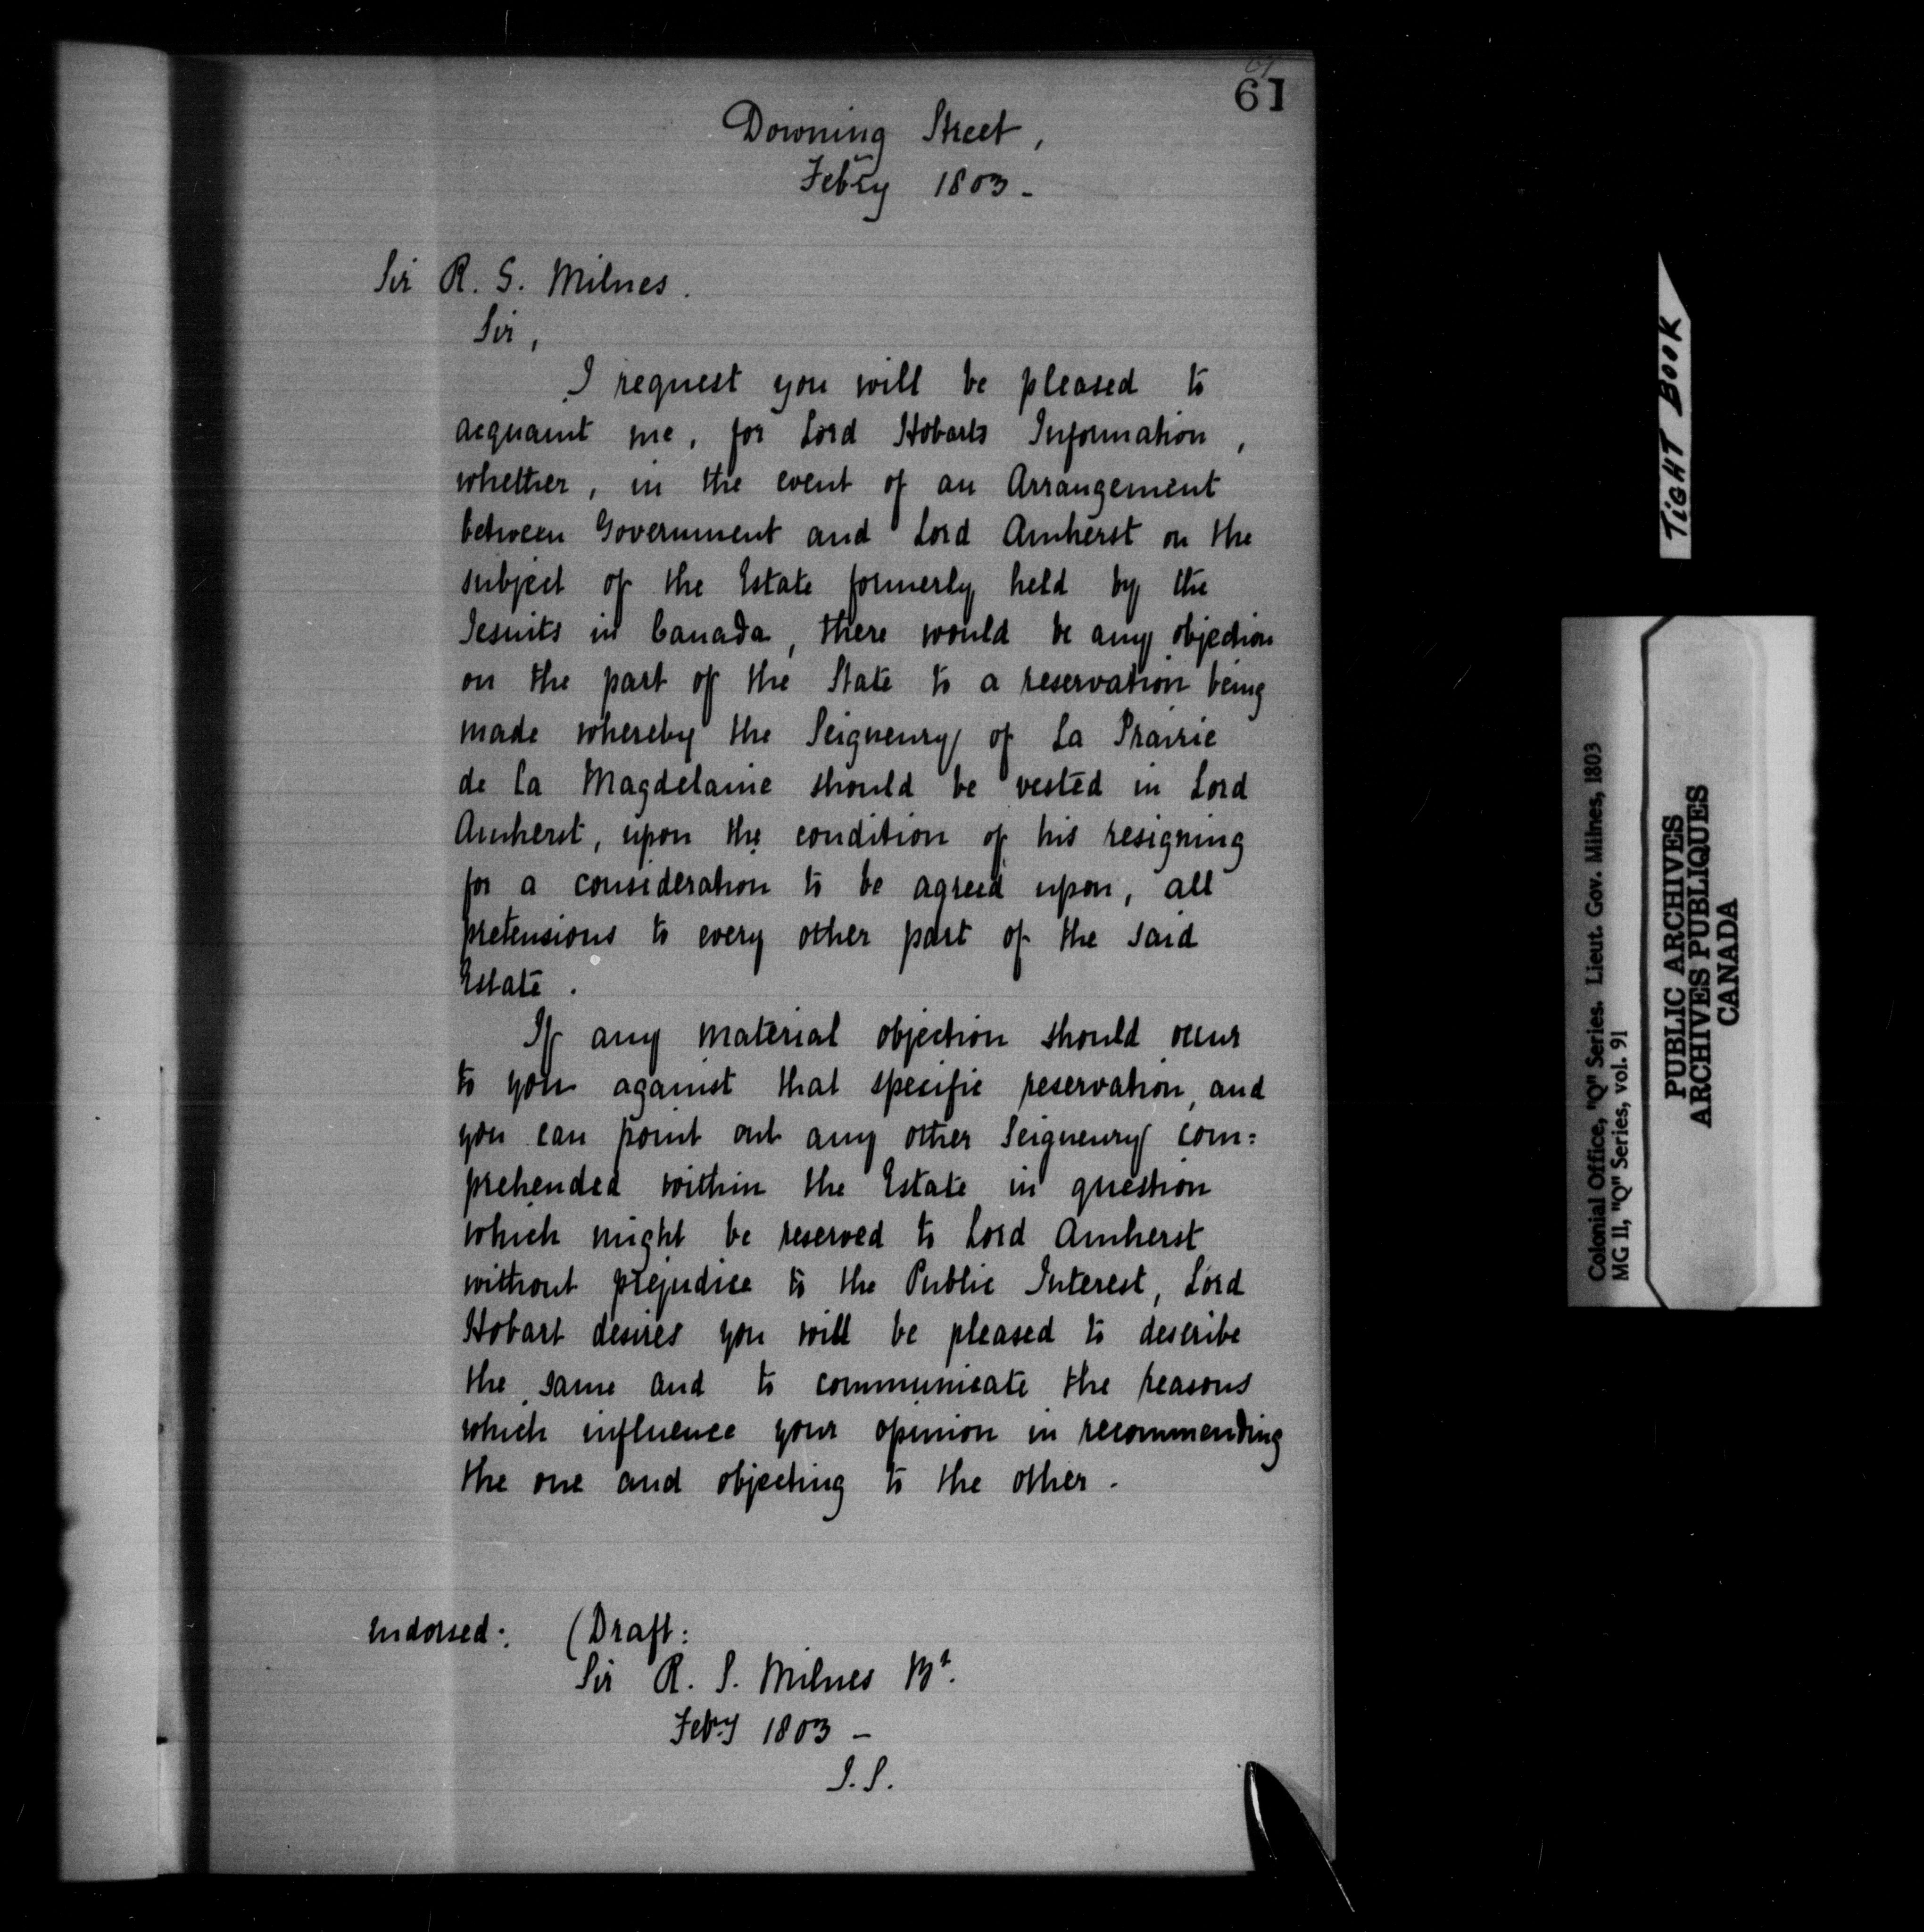 61
61
Downing Street,
Febry 1803 -
Sir R. S. Milnes.
Sir,
I request you will be pleased to
acquaint me, for Lord Hobarts Information,
whether, in the event of an Arrangement
between Government and Lord Amherst on the
subject of the Estate formerly held by the
Jesuits in Canada, there would be any objection
on the part of the State to a reservation being
made whereby the Seigneury of La Prairie
de la Magdelaine should be vested in Lord
Amherst, upon the condition of his resigning
for a consideration to be agreed upon, all
pretensions to every other part of the said
Estate.
If any material objection should occur
to you against that specific reservation, and
you can point out any other Seigneury com=
prehended within the Estate in question
which might be reserved to Lord Amherst
without prejudice to the Public Interest, Lord
Hobart desires you will be pleased to describe
the same and to communicate the reasons
which influence your opinion in recommending
the one and objecting to the other.
Endorsed: (Draft:
Sir R. S. Milnes Bt.
Feby 1803 -
J.S.
TIGHT BOOK
Colonial Office, "Q" Series. Lieut. Gov. Milnes, 1803
MG 11, "Q" Series, vol. 91
PUBLIC ARCHIVES
ARCHIVES PUBLIQUES
CANADA